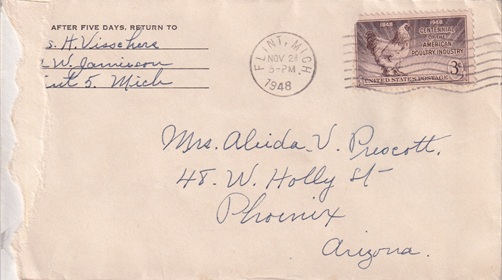 AFTER FIVE DAYS, RETURN TO
s. H. Visschers
W. Jamieson
int 5. Mich
FLINT, MICH
NOV 26
5-PM
1948
1848 1948
CENTENNIAL
OF THE
AMERICAN
POULTRY INDUSTRY
UNITED STATES POSTAGE
3¢
Mrs. Aleida V. Prescott.
48. W. Holly St
Phoenix
Arizona.